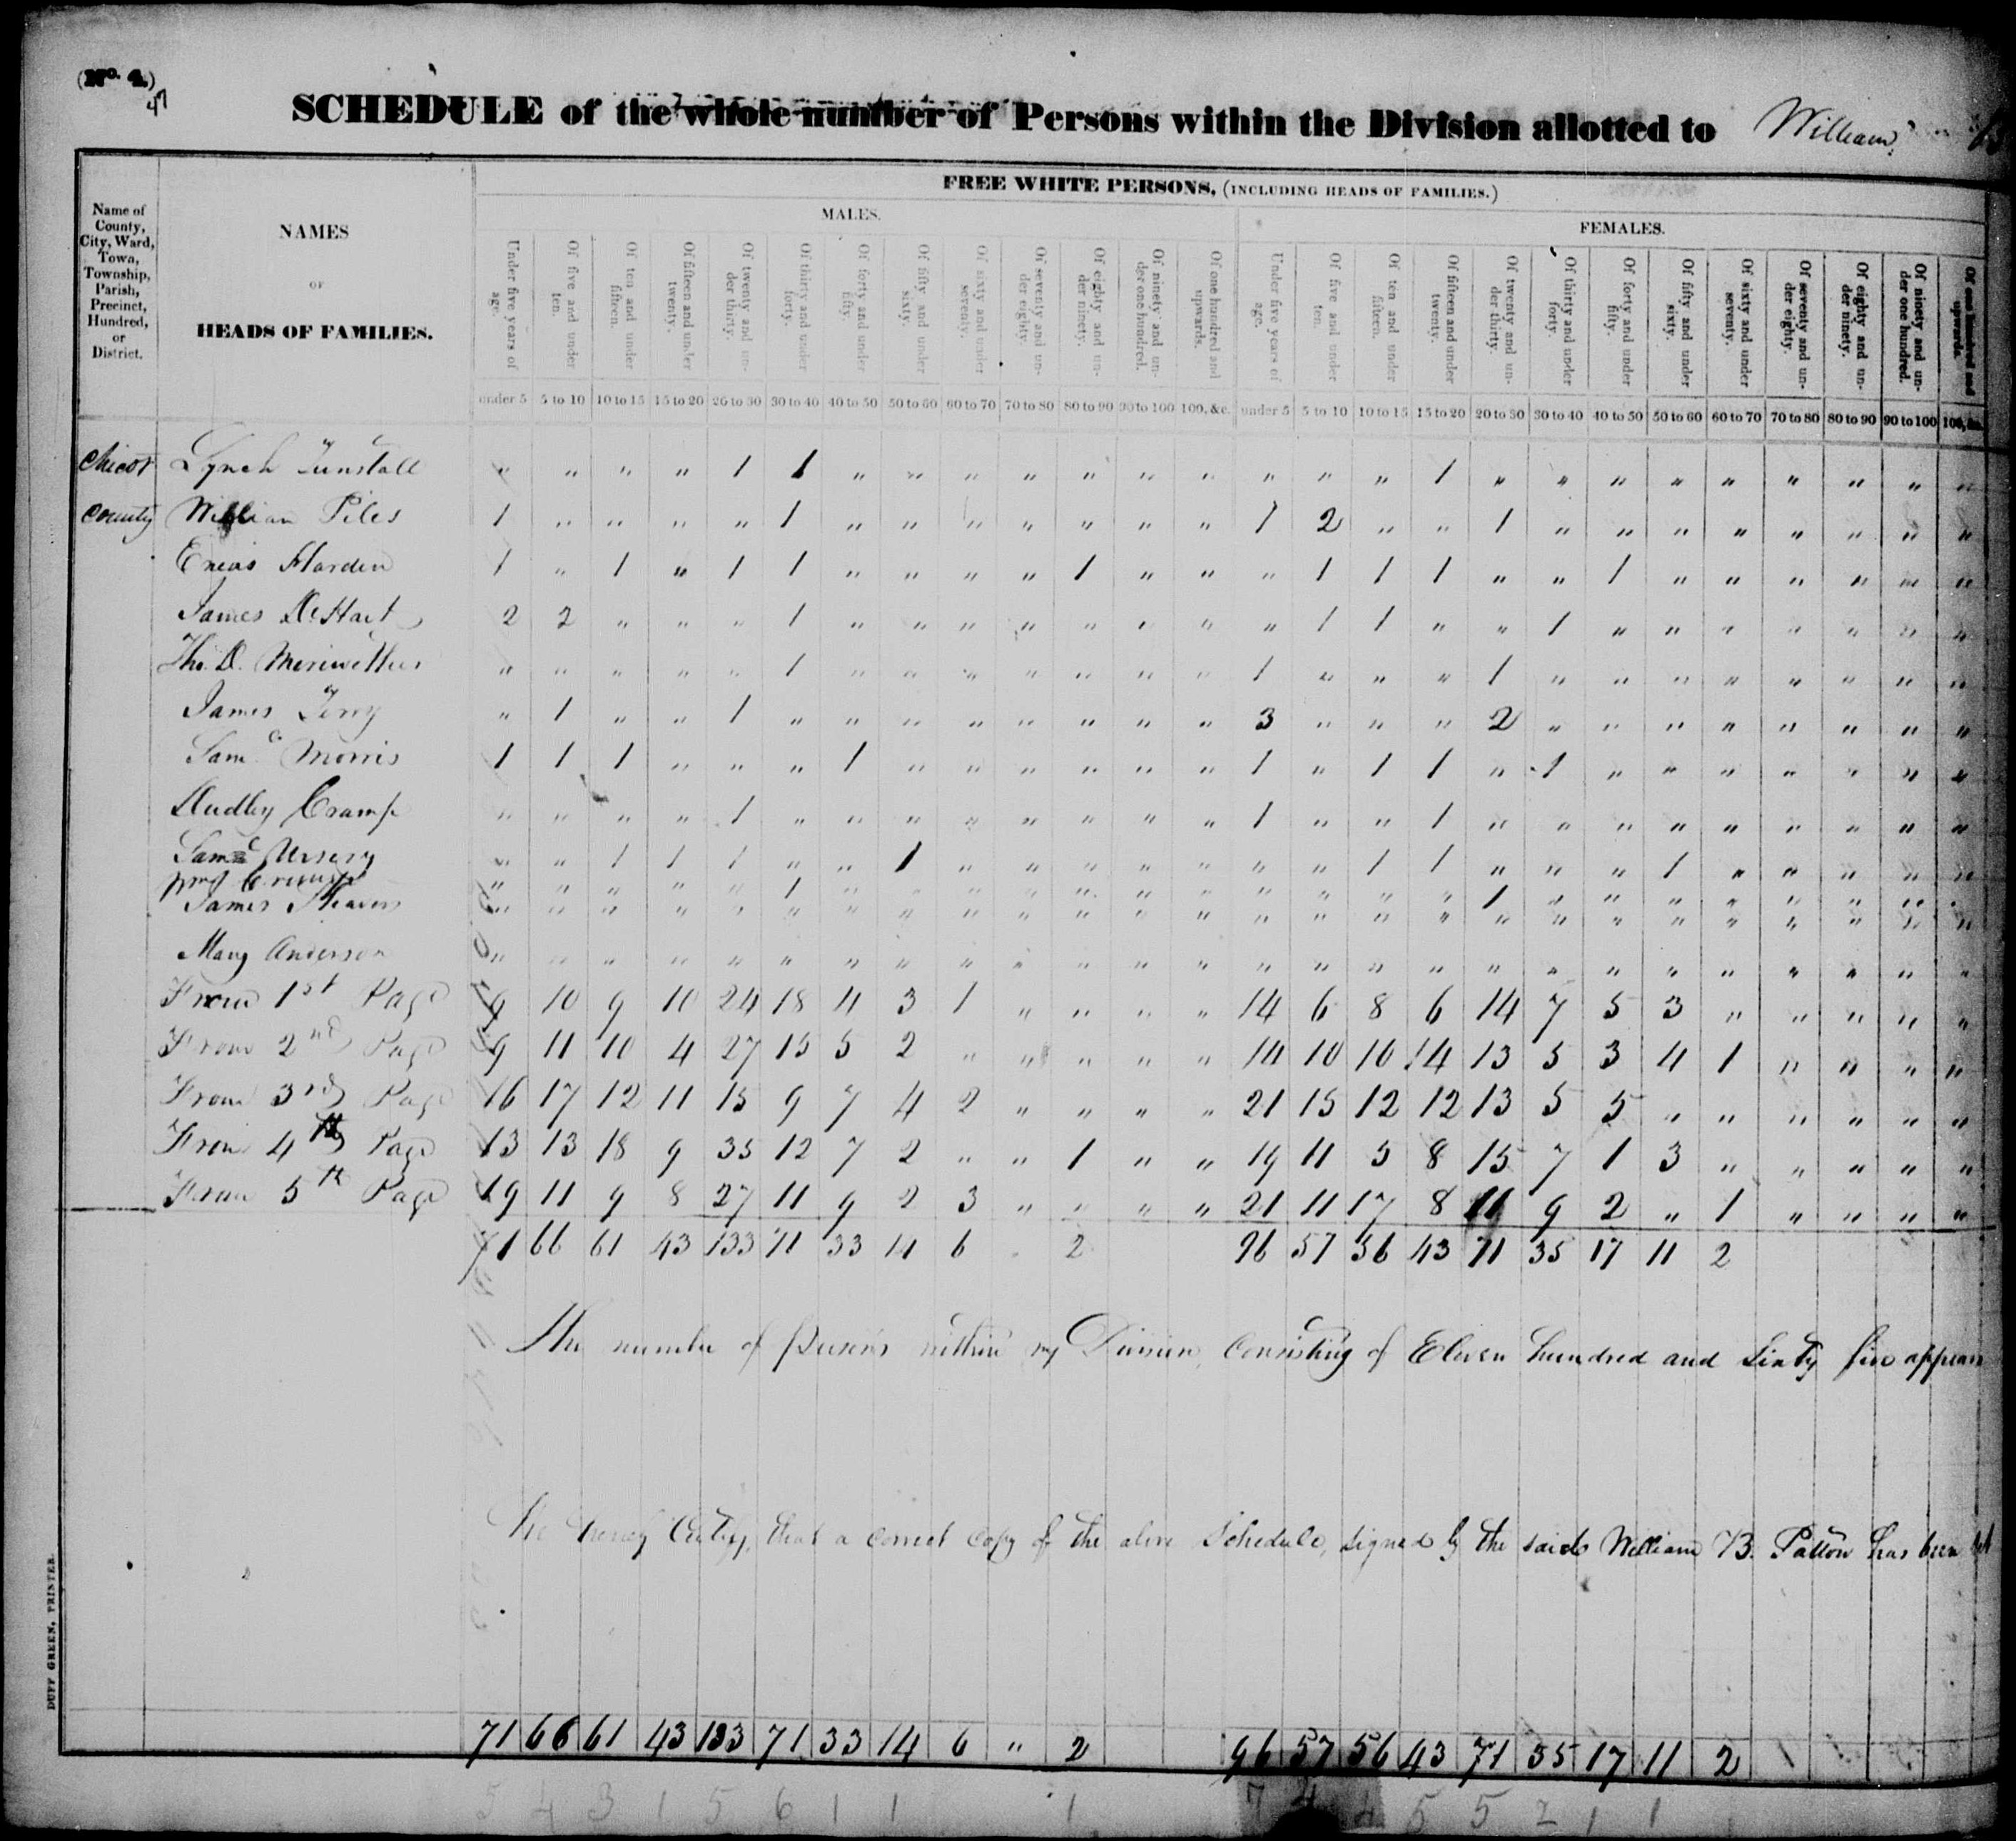 (No. 4.)
47
SCHEDULE of the whole number of Persons within the Division allotted to William
Name of County, City, Ward, Town, Township, Parish, Precinct, Hundred, or District.
NAMES OF HEADS OF FAMILIES.
FREE WHITE PERSONS, (INCLUDING HEADS OF FAMILIES.)
MALES. FEMALES.
Under five years of age. Of five and under ten. Of ten and under fifteen. Of fifteen and under twenty. Of twenty and under thirty. Of thirty and under forty. Of forty and under fifty. Of fifty and under sixty. Of sixty and under seventy. Of seventy and under eighty. Of eighty and under ninety. Of ninety and under one hundred. Of one hundred and upwards. Under five years of age. Of five and under ten. Of ten and under fifteen. Of fifteen and under twenty. Of twenty and under thirty. Of thirty and under forty. Of forty and under fifty. Of fifty and under sixty. Of sixty and under seventy. Of seventy and under eighty. Of eighty and under ninety. Of ninety and under one hundred. Of one hundred and upwards.
under 5 5 to 10 10 to 15 15 to 20 20 to 30 30 to 40 40 to 50 50 to 60 60 to 70 70 to 80 80 to 90 90 to 100 100, &c. under 5 5 to 10 10 to 15 15 to 20 20 to 30 30 to 40 40 to 50 50 to 60 60 to 70 70 to 80 80 to 90 90 to 100 100, &c.
Chicot Lynch Tunstall " " " " 1 1 " " " " " " " " " " 1 " " " " " " " " "
County William Piles 1 " " " " 1 " " " " " " " 1 2 " " 1 " " " " " " " "
Eneas Harden 1 " 1 " 1 1 " " " " 1 " " " 1 1 1 " " 1 " " " " " "
James DeHart 2 2 " " " 1 " " " " " " " " 1 1 " " 1 " " " " " " "
Tho. D. Meriwether " " " " " 1 " " " " " " " 1 " " " 1 " " " " " " " "
James Terry " 1 " " 1 " " " " " " " " 3 " " " 2 " " " " " " " "
Saml. Morris 1 1 1 " " " 1 " " " " " " 1 " 1 1 " 1 " " " " " " "
Dudley Cramp " " " " 1 " " " " " " " " 1 " " 1 " " " " " " " " "
Saml Ursery " " 1 1 1 " " 1 " " " " " " " 1 1 " " " 1 " " " " "
" " " " " 1 " " " " " " " " " " " 1 " " " " " " "
James " " " " " " " " " " " " " " " " " " " " " " " " " "
Mary Anderson " " " " " " " " " " " " " " " " " " " " " " " " " "
From 1st Page 9 10 9 10 24 18 4 3 1 " " " " 14 6 8 6 14 7 5 3 " " " " "
From 2nd Page 9 11 10 4 27 15 5 2 " " " " " 14 10 10 14 13 5 3 4 1 " " " "
From 3rd Page 16 17 12 11 15 9 7 4 2 " " " " 21 15 12 12 13 5 5 " " " " " "
From 4th Page 13 13 18 9 35 12 7 2 " " 1 " " 19 11 5 8 15 7 1 3 " " " " "
From 5th Page 19 11 9 8 27 11 9 2 3 " " " " 21 11 17 8 11 9 2 " 1 " " " "
71 66 61 43 133 71 33 14 6 " 2 96 57 56 43 71 35 17 11 2
The number of Persons within my Division, Consisting of Eleven hundred and Sixty five appears
We hereby Certify, that a correct copy of the above Schedule, signed by the said William B. Patton has been
71 66 61 43 133 71 33 14 6 " 2 96 57 56 43 71 35 17 11 2
5 4 3 1 5 6 1 1 1 7 4 4 5 5 2 1 1
DUFF GREEN, PRINTER.